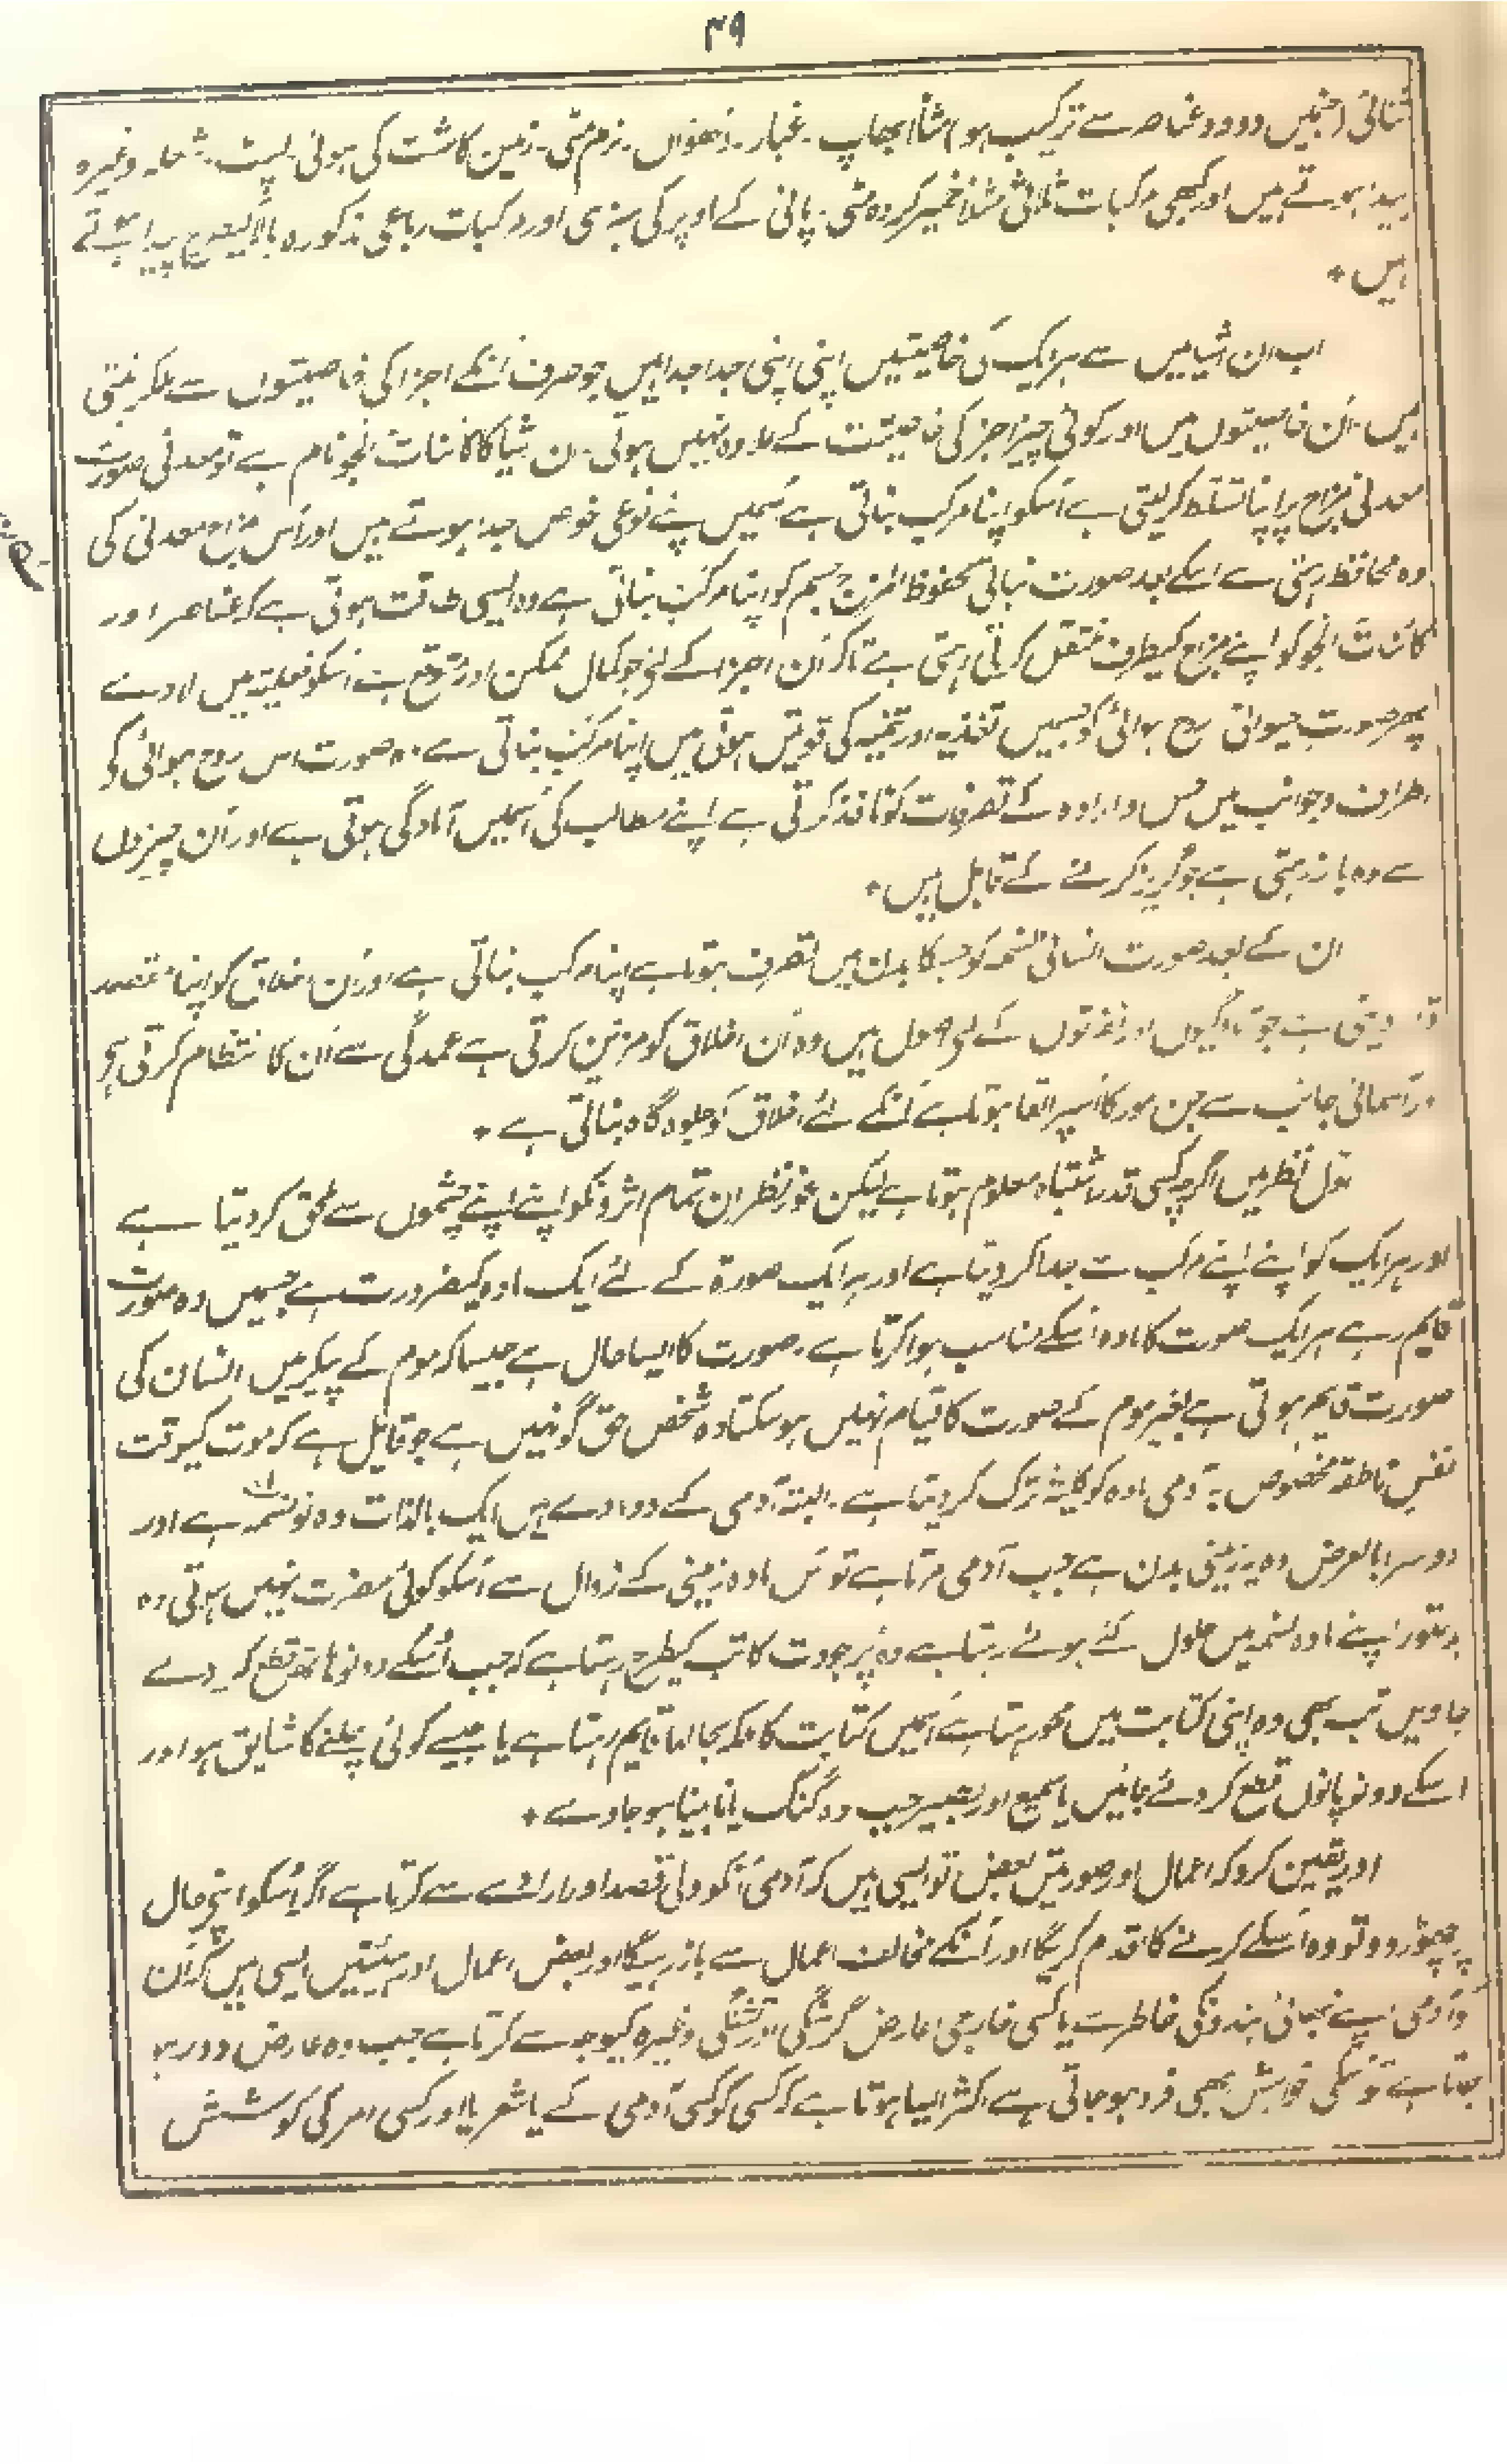 ۴۹
ثنائی (جنمیں دو دو عناصر سے ترکیب ہو) مثلاً بھاپ۔ غبار۔ دُھنواں۔ نرم مٹی۔ زمین کاشت کی ہوئی۔ لپٹ۔ شعلہ وغیرہ
پیدا ہوتے ہیں اور کبھی مرکبات ثلاثی مثلاً خمیر کردہ مٹی۔ پانی کے اوپر کی سبزی اور مرکبات رباعی مذکورہ بالا پیدا ہوتے
ہیں *
اب ان اشیا میں سے ہر ایک کی خاصیتیں اپنی اپنی جدا جدا ہیں جو صرف اُنکے اجزا کی خاصیتوں سے ملکر بنتی
ہیں۔ اُن خاصیتوں میں اور کوئی چیز اجزا کی خاصیت کے علاوہ نہیں ہوتی۔ ان اشیا کا کائنات الجو نام ہے تو معدنی صورت
معدنی مزاج پر اپنا تسلط کر لیتی ہے اُسکو اپنا مرکب بناتی ہے اُسمیں اپنے نوعی خواص جدا ہوتے ہیں اور اُس مزاج معدنی کی
وہ محافظ رہتی ہے اسکے بعد صورت نباتی محفوظ المزاج جسم کو اپنا مرکب بناتی ہے وہ ایسی طاقت ہوتی ہے کہ عناصر اور
کائنات الجو کو اپنے مزاج کیطرف منتقل کرتی رہتی ہے تاکہ اُن اجزا کے لئے جو کمال ممکن اور متوقع ہے اُسکو فعلیت میں لاوے
پھر صورت حیوانی روح ہوائی کو جسمیں تغذیہ اور تنمیہ کی قوتیں ہوتی ہیں اپنا مرکب بناتی ہے۔ وہ صورت اس روح ہوائی کو
اطراف وجوانب میں حس و ارادہ کے تصرفات کو نافذ کرتی ہے اپنے مطالب کی اُسمیں آمادگی ہوتی ہے اور اُن چیزوں
سے وہ باز رہتی ہے جو گریز کرنے کے قابل ہیں *
ان کے بعد صورت انسانی نسمہ کو جسکا بدن میں تصرف ہوتا ہے اپنا مرکب بناتی ہے اور اُن اخلاق کو اپنا مقصد
دیتی ہے جو آمادگیوں اور نفرتوں کے لئے اصول ہیں وہ اُن اخلاق کو مزین کرتی ہے عمدگی سے اُن کا انتظام کرتی ہے
اور آسمانی جانب سے جن امور کا اُسپر القا ہوتا ہے اُنکے لئے اخلاق کو جلوہ گاہ بناتی ہے *
اول نظر میں اگرچہ کسی قدر اشتباہ معلوم ہوتا ہے لیکن غور نظر ان تمام اثروں کو اپنے اپنے چشموں سے ملحق کر دیتا ہے
اور ہر ایک کو اپنے اپنے مرکب سے جدا کر دیتا ہے اور ہر ایک صورۃ کے لئے ایک مادہ کی ضرورت ہے جسمیں وہ صورت
قایم رہے ہر ایک صورت کا مادہ اُسکے مناسب ہوا کرتا ہے۔ صورت کا ایسا حال ہے جیسا کہ موم کے پیکر میں انسان کی
صورت قایم ہوتی ہے بغیر موم کے صورت کا قیام نہیں ہو سکتا وہ شخص حق گو نہیں ہے جو قایل ہے کہ موت کیوقت
نفس ناطقہ مخصوص بہ آدمی مادہ کو کلیۃً ترک کر دیتا ہے۔ البتہ آدمی کے دو مادے ہیں ایک بالذات وہ تو نسمہ ہے اور
دوسرا بالعرض وہ یہ زمینی بدن ہے جب آدمی مرتا ہے تو اُس مادہ زمینی کے زوال سے اُسکو کوئی مضرت نہیں ہوتی وہ
بدستور اپنے مادہ نسمہ میں حلول کئے ہوئے رہتا ہے وہ پُر جودت کاتب کیطرح رہتا ہے کہ جب اُسکے دونو ہاتھ قطع کر دے
جاویں تب بھی وہ اپنی کتابت میں محو رہتا ہے اُسمیں کتابت کا ملکہ بحالہا قایم رہتا ہے یا جیسے کوئی چلنے کا شایق ہو اور
اسکے دونو پانوں قطع کر دئے جائیں یا سمیع اور بصیر جب وہ گنگ یا نابینا ہو جاوے *
اور یقین کرو کہ اعمال اور صورتیں بعض تو ایسی ہیں کہ آدمی اُنکو دلی قصد اور ارادے سے کرتا ہے اگر اُسکو اپنے حال
پر چھوڑ دو تو وہ اُسکے کرنے کا اقدام کریگا اور اُنکے مخالف اعمال سے باز رہیگا اور بعض اعمال اور ہیئتیں ایسی ہیں کہ اُن
کو آدمی اپنے بھائی بندونکی خاطر سے یا کسی خارجی عارض گرسنگی اور تشنگی وغیرہ کیوجہ سے کرتا ہے جب وہ عارض دور ہو
جاتا ہے تو اُسکی خواہش بھی فرو ہو جاتی ہے اکثر ایسا ہوتا ہے کہ کسی کو کسی آدمی کے یا شعر یا اور کسی امر کی کوشش